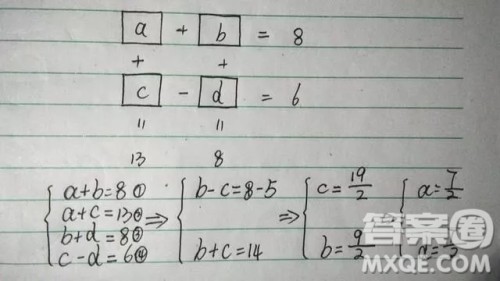 a + b = 8
+ +
c - d = 6
॥ ॥
13 8
a+b=8①
a+c=13②
b+d=8③
c-d=6④
⇒
b-c=8-5
b+c=14
⇒
c=19/2
b=9/2
a=7/2
答案圈
MXQE.COM